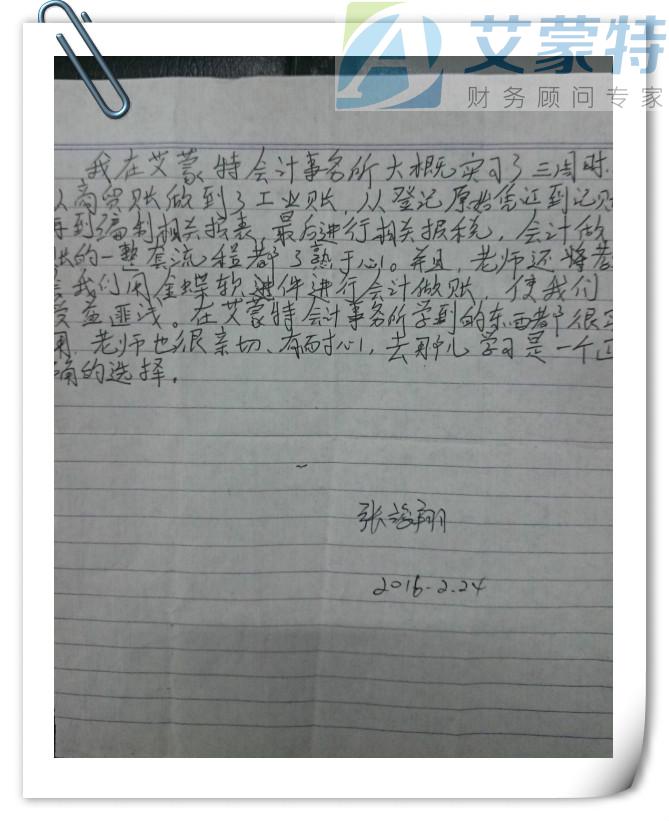 艾蒙特
财务顾问专家
我在艾蒙特会计事务所大概实习了三周时
从商贸账做到了工业账,从登记原始凭证到记账
再到编制相关报表,最后进行相关报税,会计做
账的一整套流程都了熟于心。并且,老师还将着
我们用金蝶软件进行会计做账,使我们
受益匪浅。在艾蒙特会计事务所学到的东西都很实
用,老师也很亲切、有耐心,去那儿学习是一个正
确的选择。
张
翔
2016.2.24